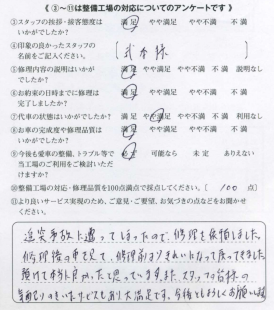 《 ③～⑪は整備工場の対応についてのアンケートです 》
③スタッフの挨拶・接客態度は 満 足 やや満足 やや不満 不 満
いかがでしたか？
④印象の良かったスタッフの
名前をご記入ください。 [ 武本様 ]
⑤修理内容の説明はいかが 満 足 やや満足 やや不満 不 満 説明なし
でしたか？
⑥お約束の日時までに修理は 満 足 やや満足 やや不満 不 満
完了しましたか？
⑦代車の状態はいかがでしたか？ 満 足 やや満足 やや不満 不 満 利用なし
⑧お車の完成度や修理品質は 満 足 やや満足 やや不満 不 満
いかがでしたか？
⑨今後も愛車の整備、トラブル等で 可能なら 未 定 ありえない
当工場のご利用をご検討いただ
けますか？
⑩整備工場の対応・修理品質を100点満点で採点してください。 ( 100 点)
⑪より良いサービス実現のため、ご意見・ご要望、お気づきの点などをお聞かせ
ください。
追突事故に遭ってしまったので、修理を依頼しました。
修理後の車を見て、修理前よりきれいになって戻ってきました。
預けて本当に良かったと思っています。また、スタッフの皆様の
気配りのきいたサービスもあり大満足です。今後ともよろしくお願いします